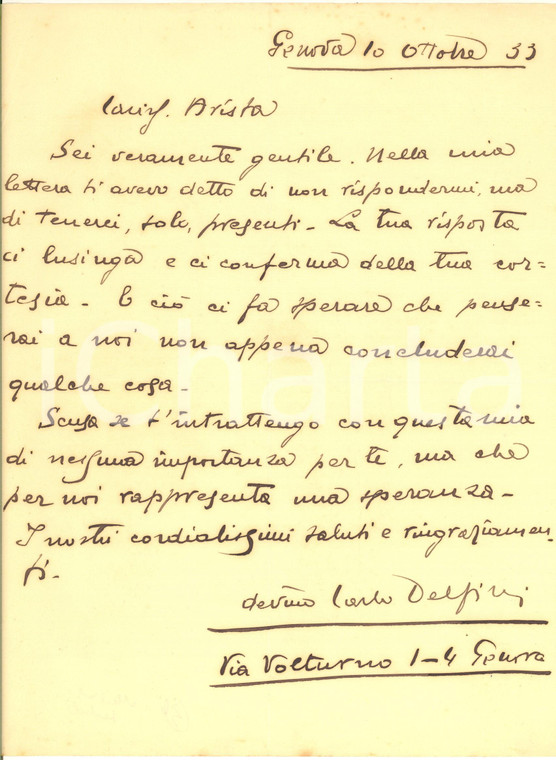 Genova 10 Ottobre 33
Cariss. Arista
Sei veramente gentile. Nella mia
lettera ti avevo detto di non rispondermi, ma
di tenerci, solo, presenti - La tua risposta
ci lusinga e ci conferma della tua cor=
tesia - E ciò ci fa sperare che pense=
rai a noi non appena concluderai
qualche cosa -
Scusa se t'intrattengo con questa mia
di nessuna importanza per te, ma che
per noi rappresenta una speranza -
I nostri cordialissimi saluti e ringraziamen-
ti -
dev/mo Carlo Delfini
Via Volturno 1-4 Genova
iCharta